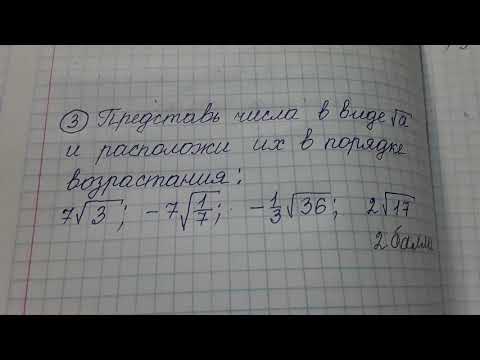 ③ Представь числа в виде √a
и расположи их в порядке
возрастания:
7√3; -7√(1/7); -1/3√36; 2√17
2 балла